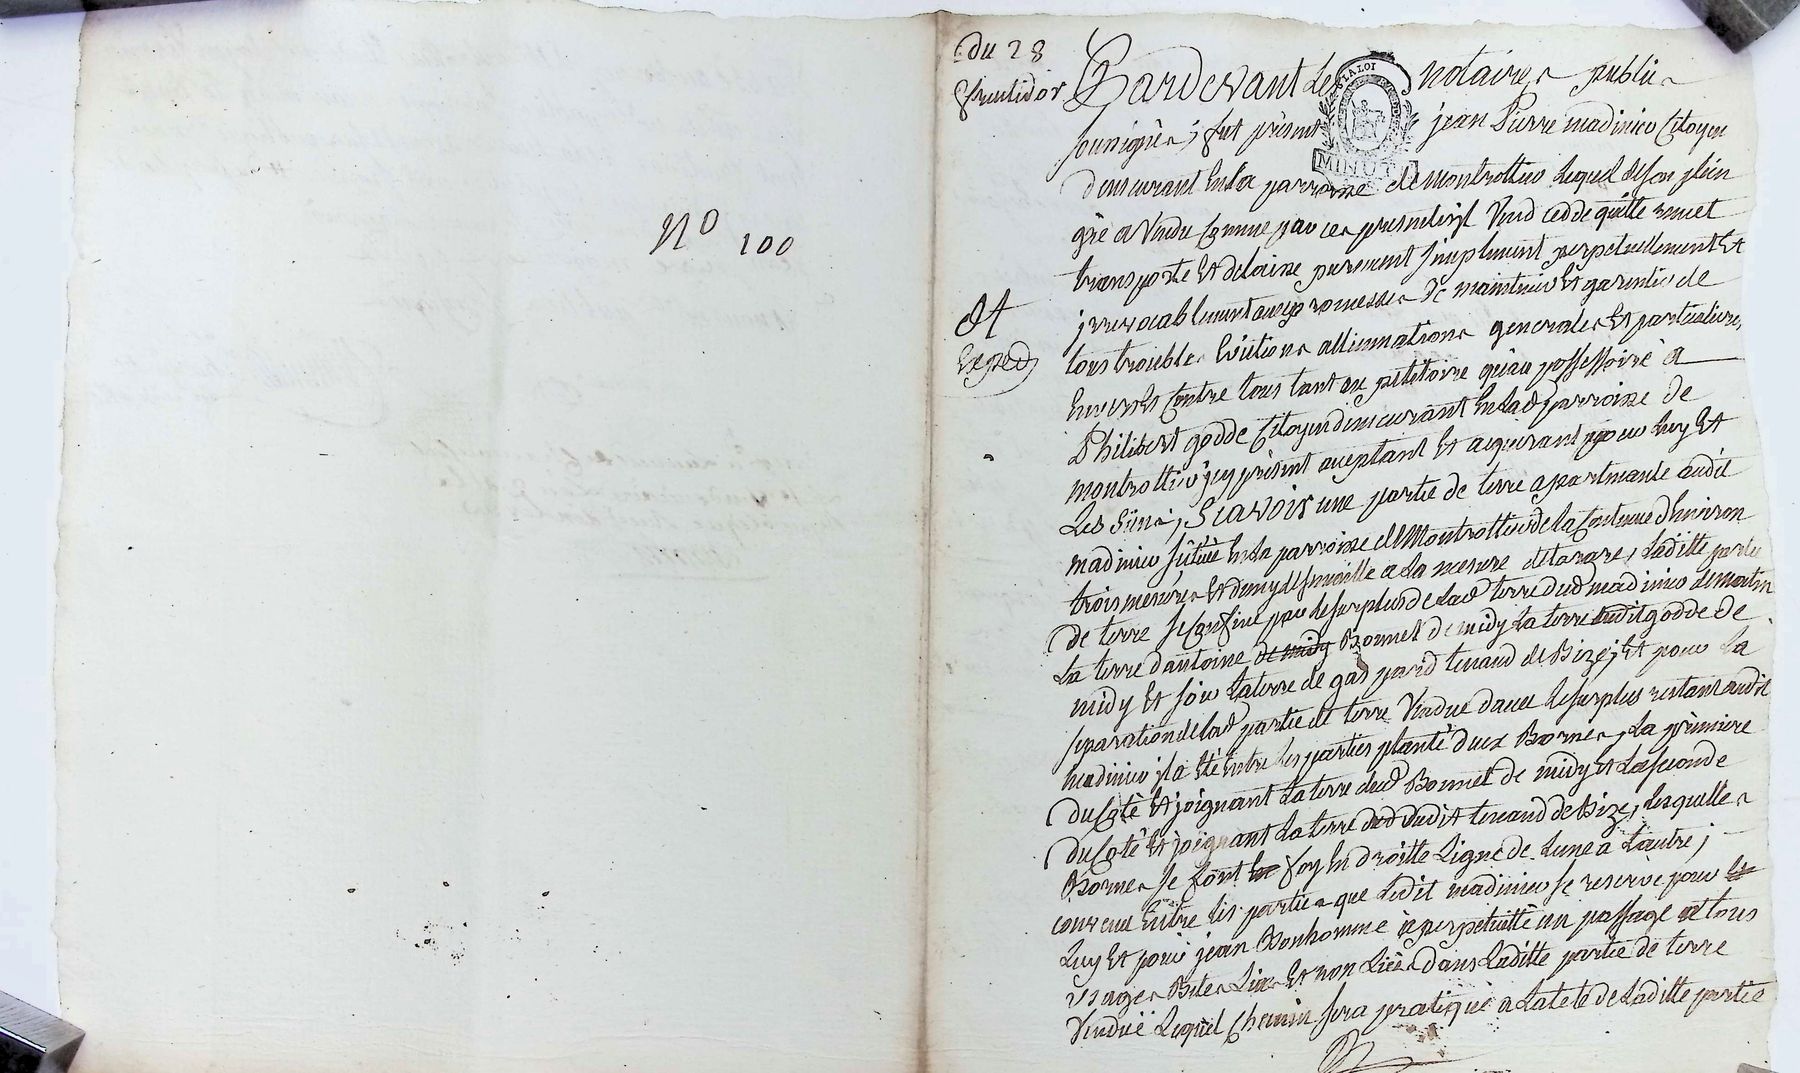 N° 100
Du 28
fructidor
dt
Exped
Pardevant Les notaires publics
soussignés, fut présent jean Pierre madinier Citoyen
demeurant En la parroisse de Montrottier Lequel de son plein
gré a Vendu Comme par ces presentes il Vend cedde quitte remet
transporte Et delaisse purement simplement perpetuellement Et
jrrevocablement avec promesses de maintenir Et garentir de
tous troubles Evictions allienations generales Et particulieres
Envers Et Contre tous tant au petitoire qu'au possessoire a
Philibert godde Citoyen demeurant En lad. parroisse de
montrottier jcy présent aceptant Et aquerant pour luy Et
Les Siens, Scavoir une partie de terre apartenante audit
madinier située En la parroisse de Montrottier de la Contenue d'Environ
trois mesures Et demy de semaille a La mesure de tarare, Laditte partie
de terre se Confine par Le surplus de Lad. terre dud. madinier de matin
La terre d'antoine de midy Bonnet de midy La terre dudit godde de
midy Et soir La terre de gaspard tenaud de Bize, Et pour La
separation de lad. partie de terre Vendue d'avec Le surplus restant audit
madinier jl a Eté Entre Les parties planté deux Bornes, La premiere
du Coté Et joignant La terre dud. Bonnet de midy Et La seconde
du Coté Et joignant La terre dud dudit tenaud de Bize, Lesquelles
Bornes se font foy En droitte Ligne de Lune a Lautre;
convenu Entre Les parties que Ledit madinier se reserve pour
Luy Et pour jean Bonhomme a perpetuité un passage a tous
usages Betes Liées Et non Liées dans Laditte partie de terre
Venduë Lequel Chemin sera pratiqué a La tete de Laditte partie
LA LOI
MINUTE